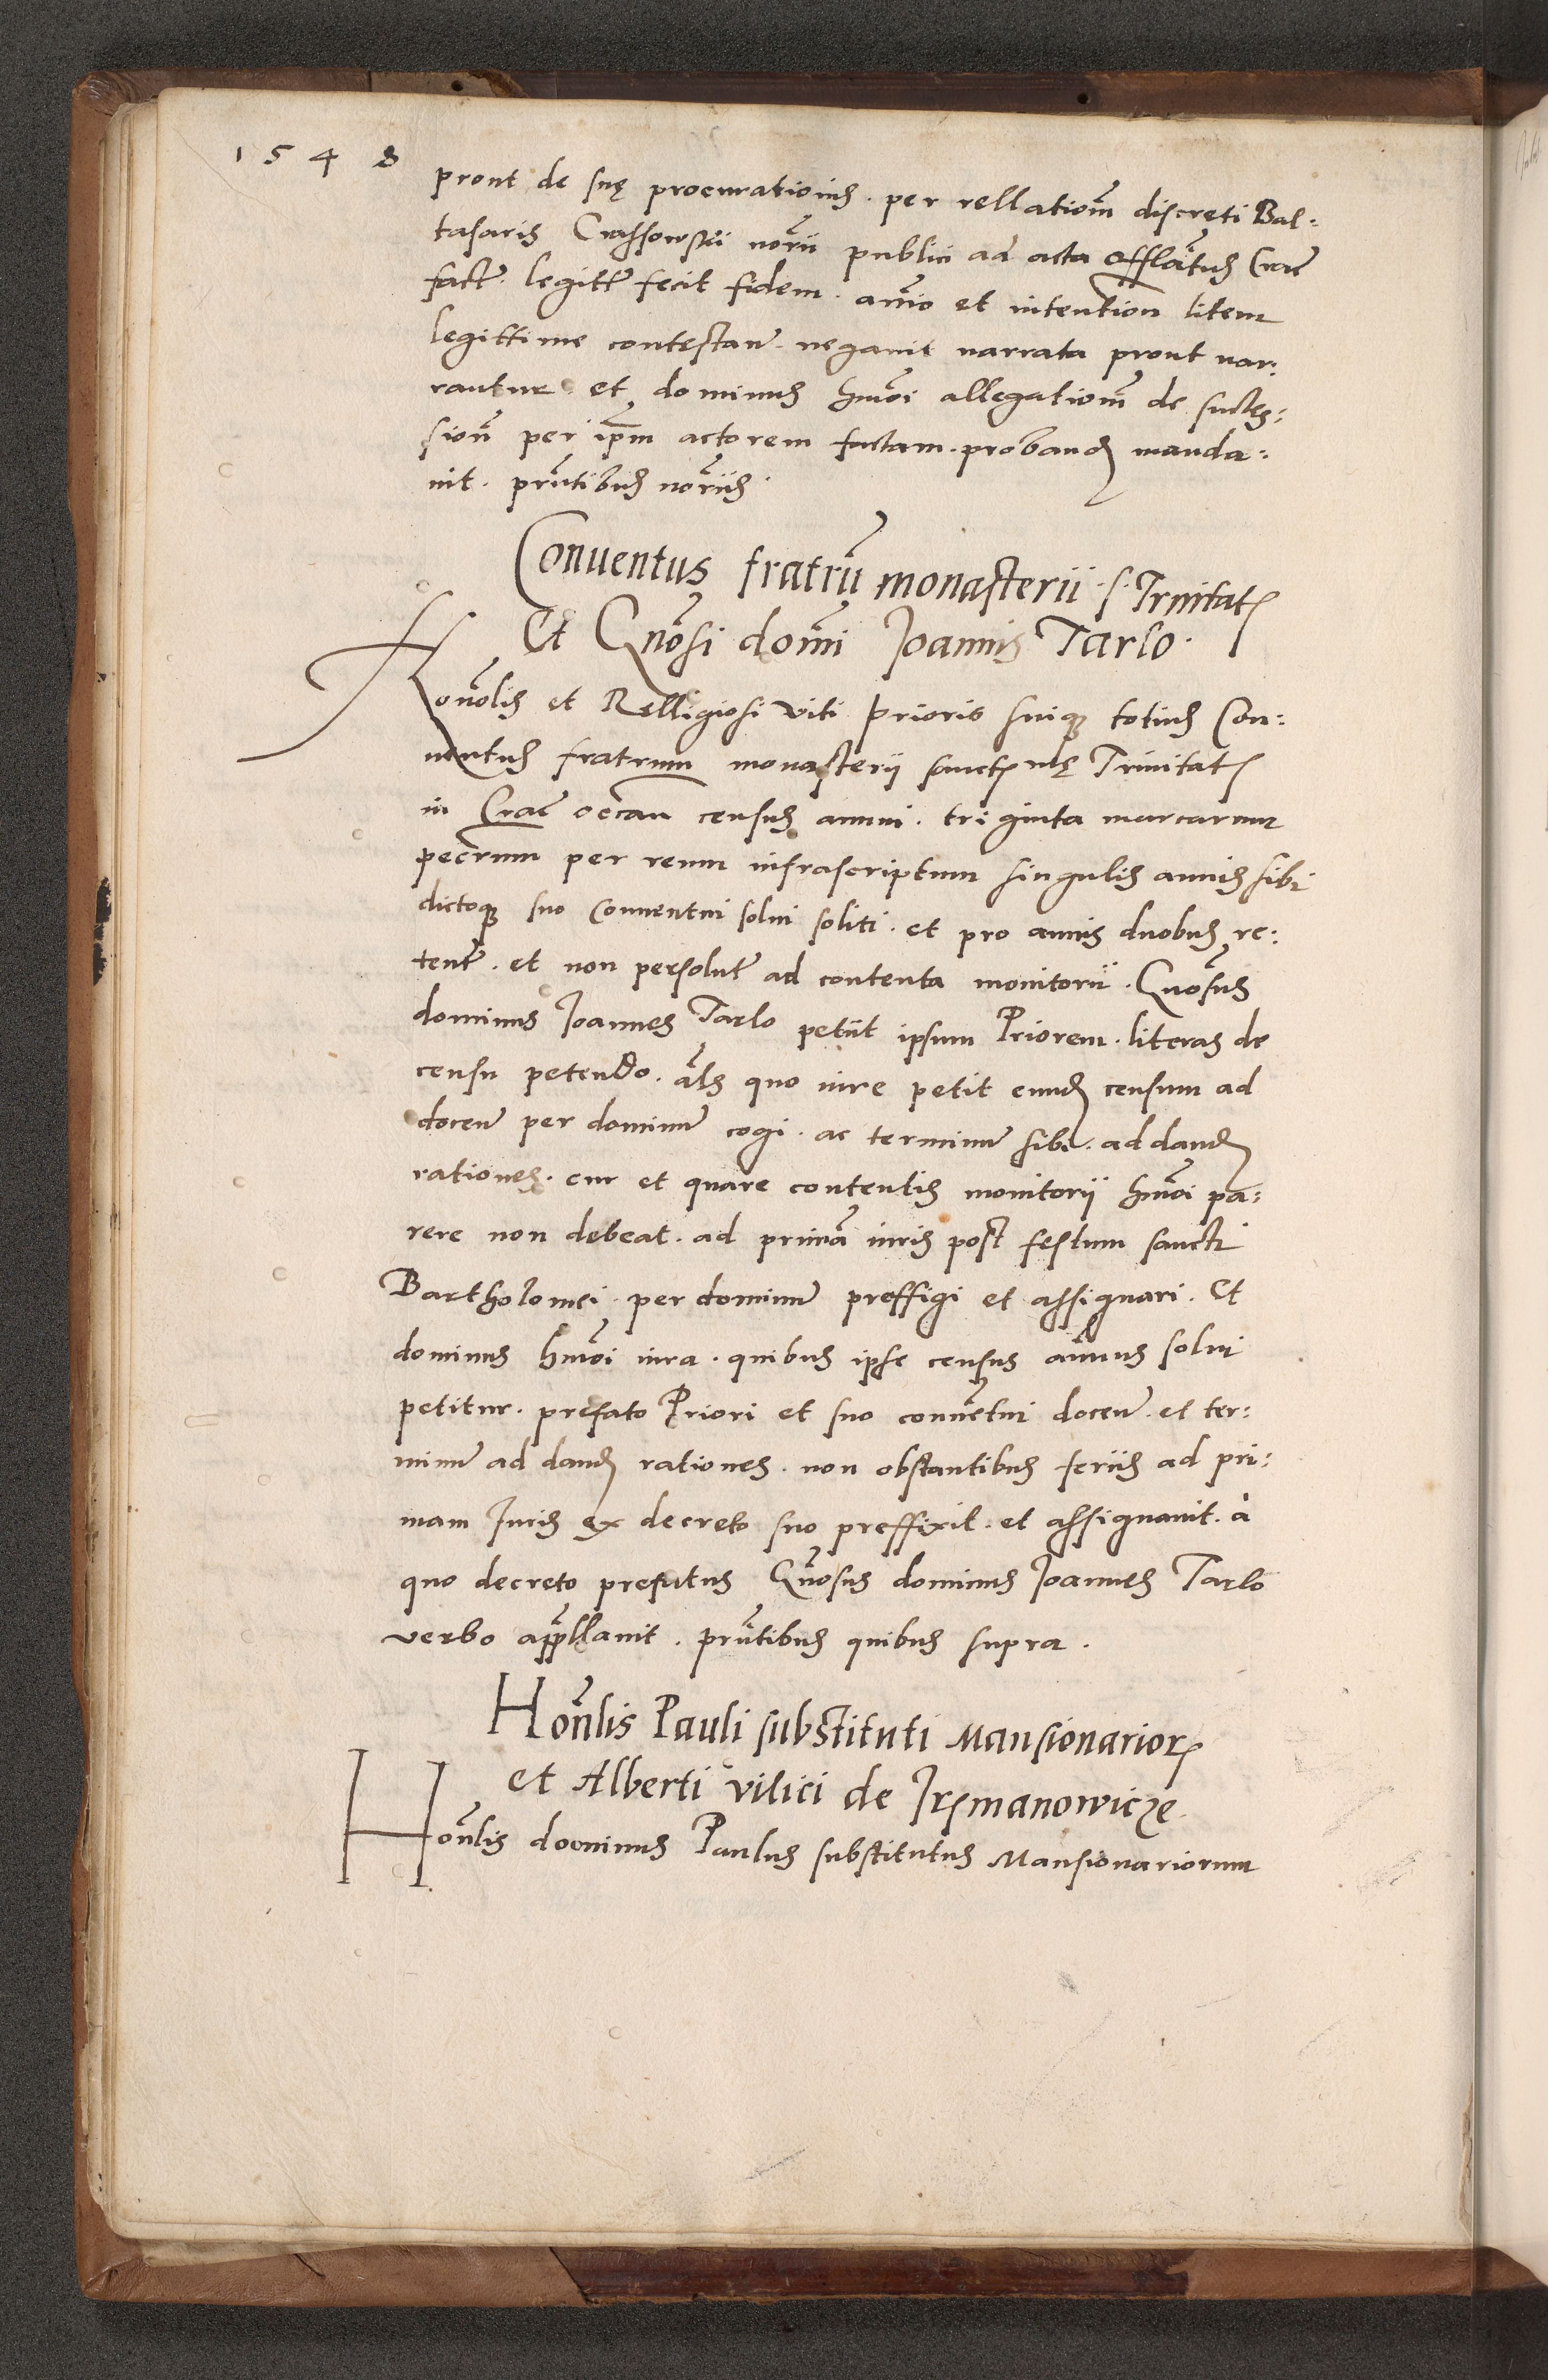 1548
prout de suę procurationis. per rellationem discreti Bal-
tasaris Crassowski norii publici ad acta offlatus Crac
fact. legitte fecit fidem. animo et intention litem
legittime contestan. negavit narrata prout nar-
rantur et dominus hmoi allegationem de succes-
sion per ipm actorem factam. proband manda-
vit. prntibus noriis.
Conventus fratru monasterii S. Trinitat
Et Gnosi domni Joannis Tarlo.
Honolis et Relligiosi viti prioris suiq totius Con-
ventus fratrum monasterii sanct Trinitat
in Crac occan census annui. triginta marcarum
pecrum per reum infrascriptum singulis annis sibi
dictoq suo Conventui solui soliti. et pro annis duobus re-
tent. et non persolut ad contenta monitorii. Gnosus
dominus Joannes Tarlo petiit ipsum Priorem. literas de
censu petendo. als quo iure petit eund censum ad
docen per dominum cogi. ac terminum sibi. ad dand
rationes. cur et quare contentis monitorii hmoi pa-
rere non debeat. ad primā iuris post festum sancti
Bartholomei. per dominum preffigi et assignari. Et
dominus hmoi iura. quibus ipse census annus solui
petitur. prefato Priori et suo conventui docen. et ter-
minum ad dand rationes. non obstantibus feriis ad pri-
mam Juris ex decreto suo preffixit. et assignavit. à
quo decreto prefatus Gnosus dominus Joannes Tarlo
verbo appellavit. prntibus quibus supra.
Honlis Pauli substituti Mansionarior
et Alberti vilici de Irzmanowicze
Honlis dominus Paulus substitutus Mansionariorum